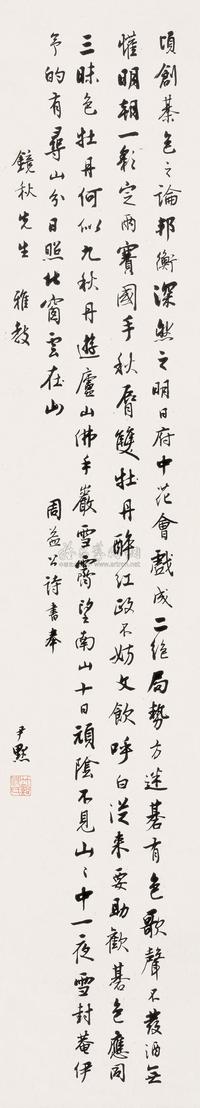 頃創棊色之論邦衡深然之明日府中花會戲成二絕局勢方迷棊有色歌聲不發酒無
懽明朝一彩定兩賽國手秋唇雙牡丹醉紅政不妨文飲呼白從來要助歡棊色應同
三昧色牡丹何似九秋丹遊廬山佛手巖雪霽望南山十日頑陰不見山〻中一夜雪封菴伊
予的有尋山分日照北窗雲在山
周益公詩書奉
鏡秋先生 雅教
尹默